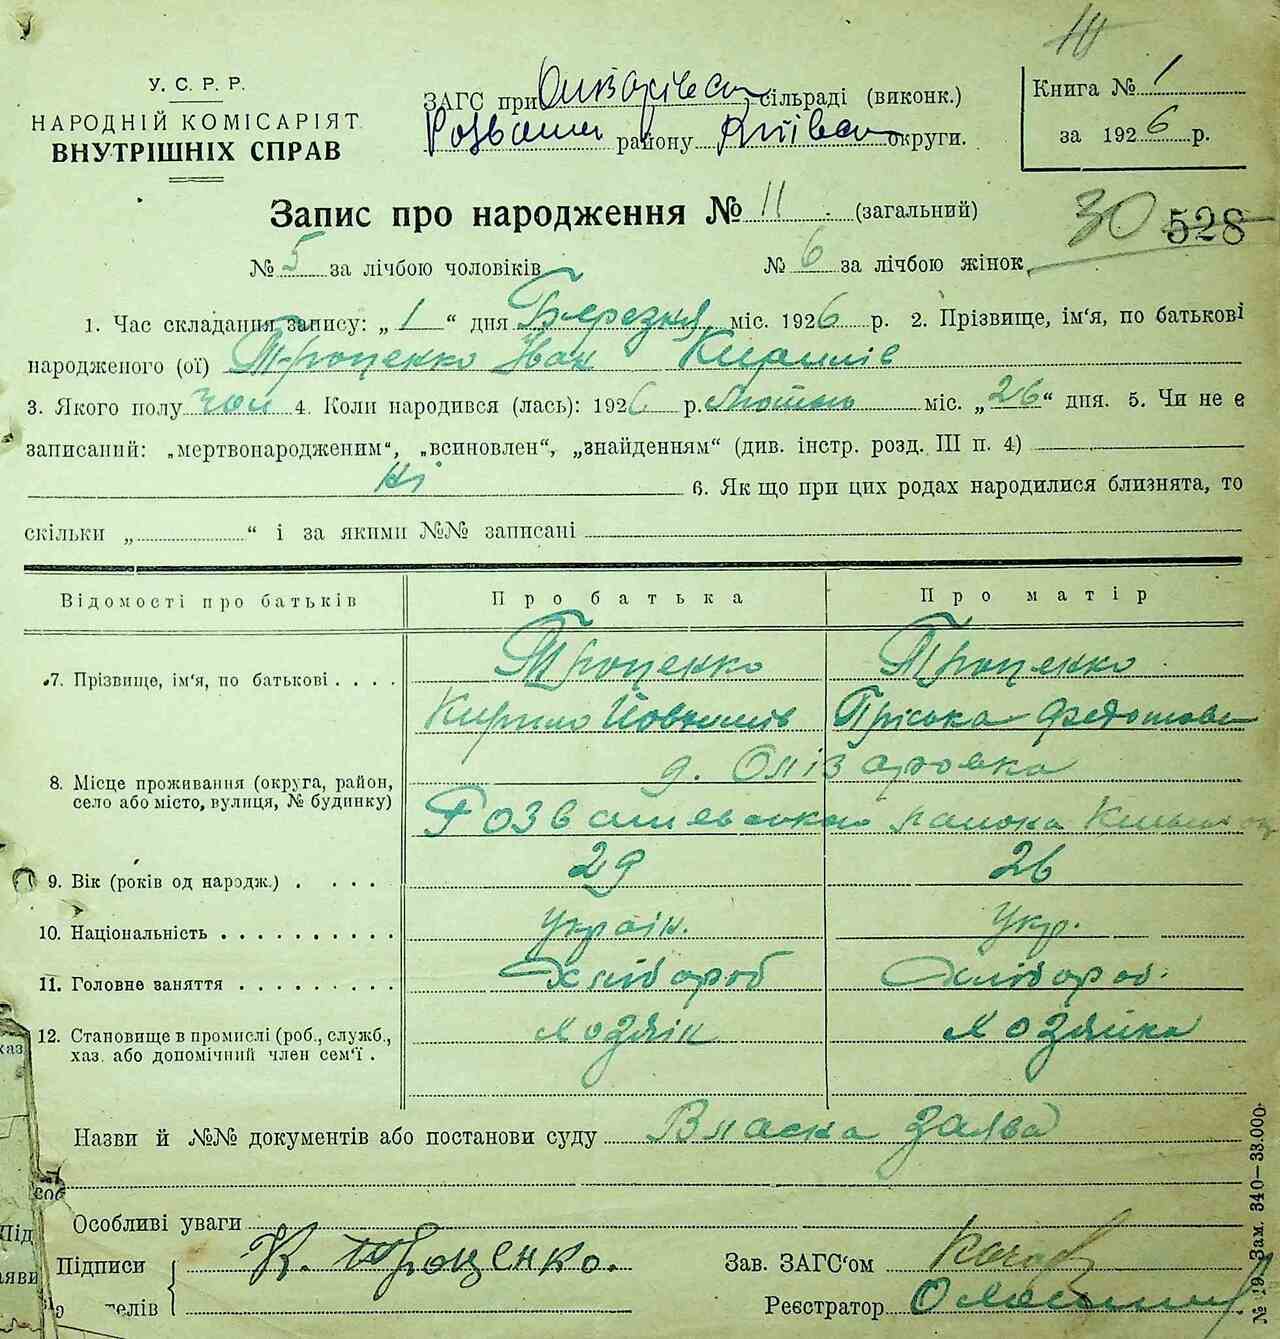 10
У. С. Р. Р.
НАРОДНІЙ КОМІСАРІЯТ
ВНУТРІШНІХ СПРАВ
ЗАГС при сільраді (виконк.)
району округи.
Книга № 1
за 1926 р.
Запис про народження № 11 (загальний)
30 528
№ 5 за лічбою чоловіків
№ 6 за лічбою жінок
1. Час складання запису: „1“ дня Березня міс. 1926 р. 2. Прізвище, ім'я, по батькові
народженого (ої) Троценко Іван Кирилів
3. Якого полу чол 4. Коли народився (лась): 1926 р. Лютого міс. „26“ дня. 5. Чи не є
записаний: „мертвонародженим“, „всиновлен“, „знайденням“ (див. інстр. розд. III п. 4)
Ні 6. Як що при цих родах народилися близнята, то
скільки „ “ і за якими №№ записані
Відомості про батьків Про батька Про матір
7. Прізвище, ім'я, по батькові . . . . Троценко Троценко
Кирило Пріська Федотова
8. Місце проживання (округа, район,
село або місто, вулиця, № будинку)
д. Олізаровка
района
9. Вік (років од народж.) . . . . . 29 26
10. Національність . . . . . . . . . . Україн. Укр.
11. Головне заняття . . . . . . . . . Хлібороб Хлібороб.
12. Становище в промислі (роб., служб.,
хаз. або допомічний член сем'ї .
хозяїн хозяйка
Назви й №№ документів або постанови суду Власна заява
Особливі уваги
Підписи К. Троценко.
Зав. ЗАГС'ом
Реєстратор
Зам. 340—33.000